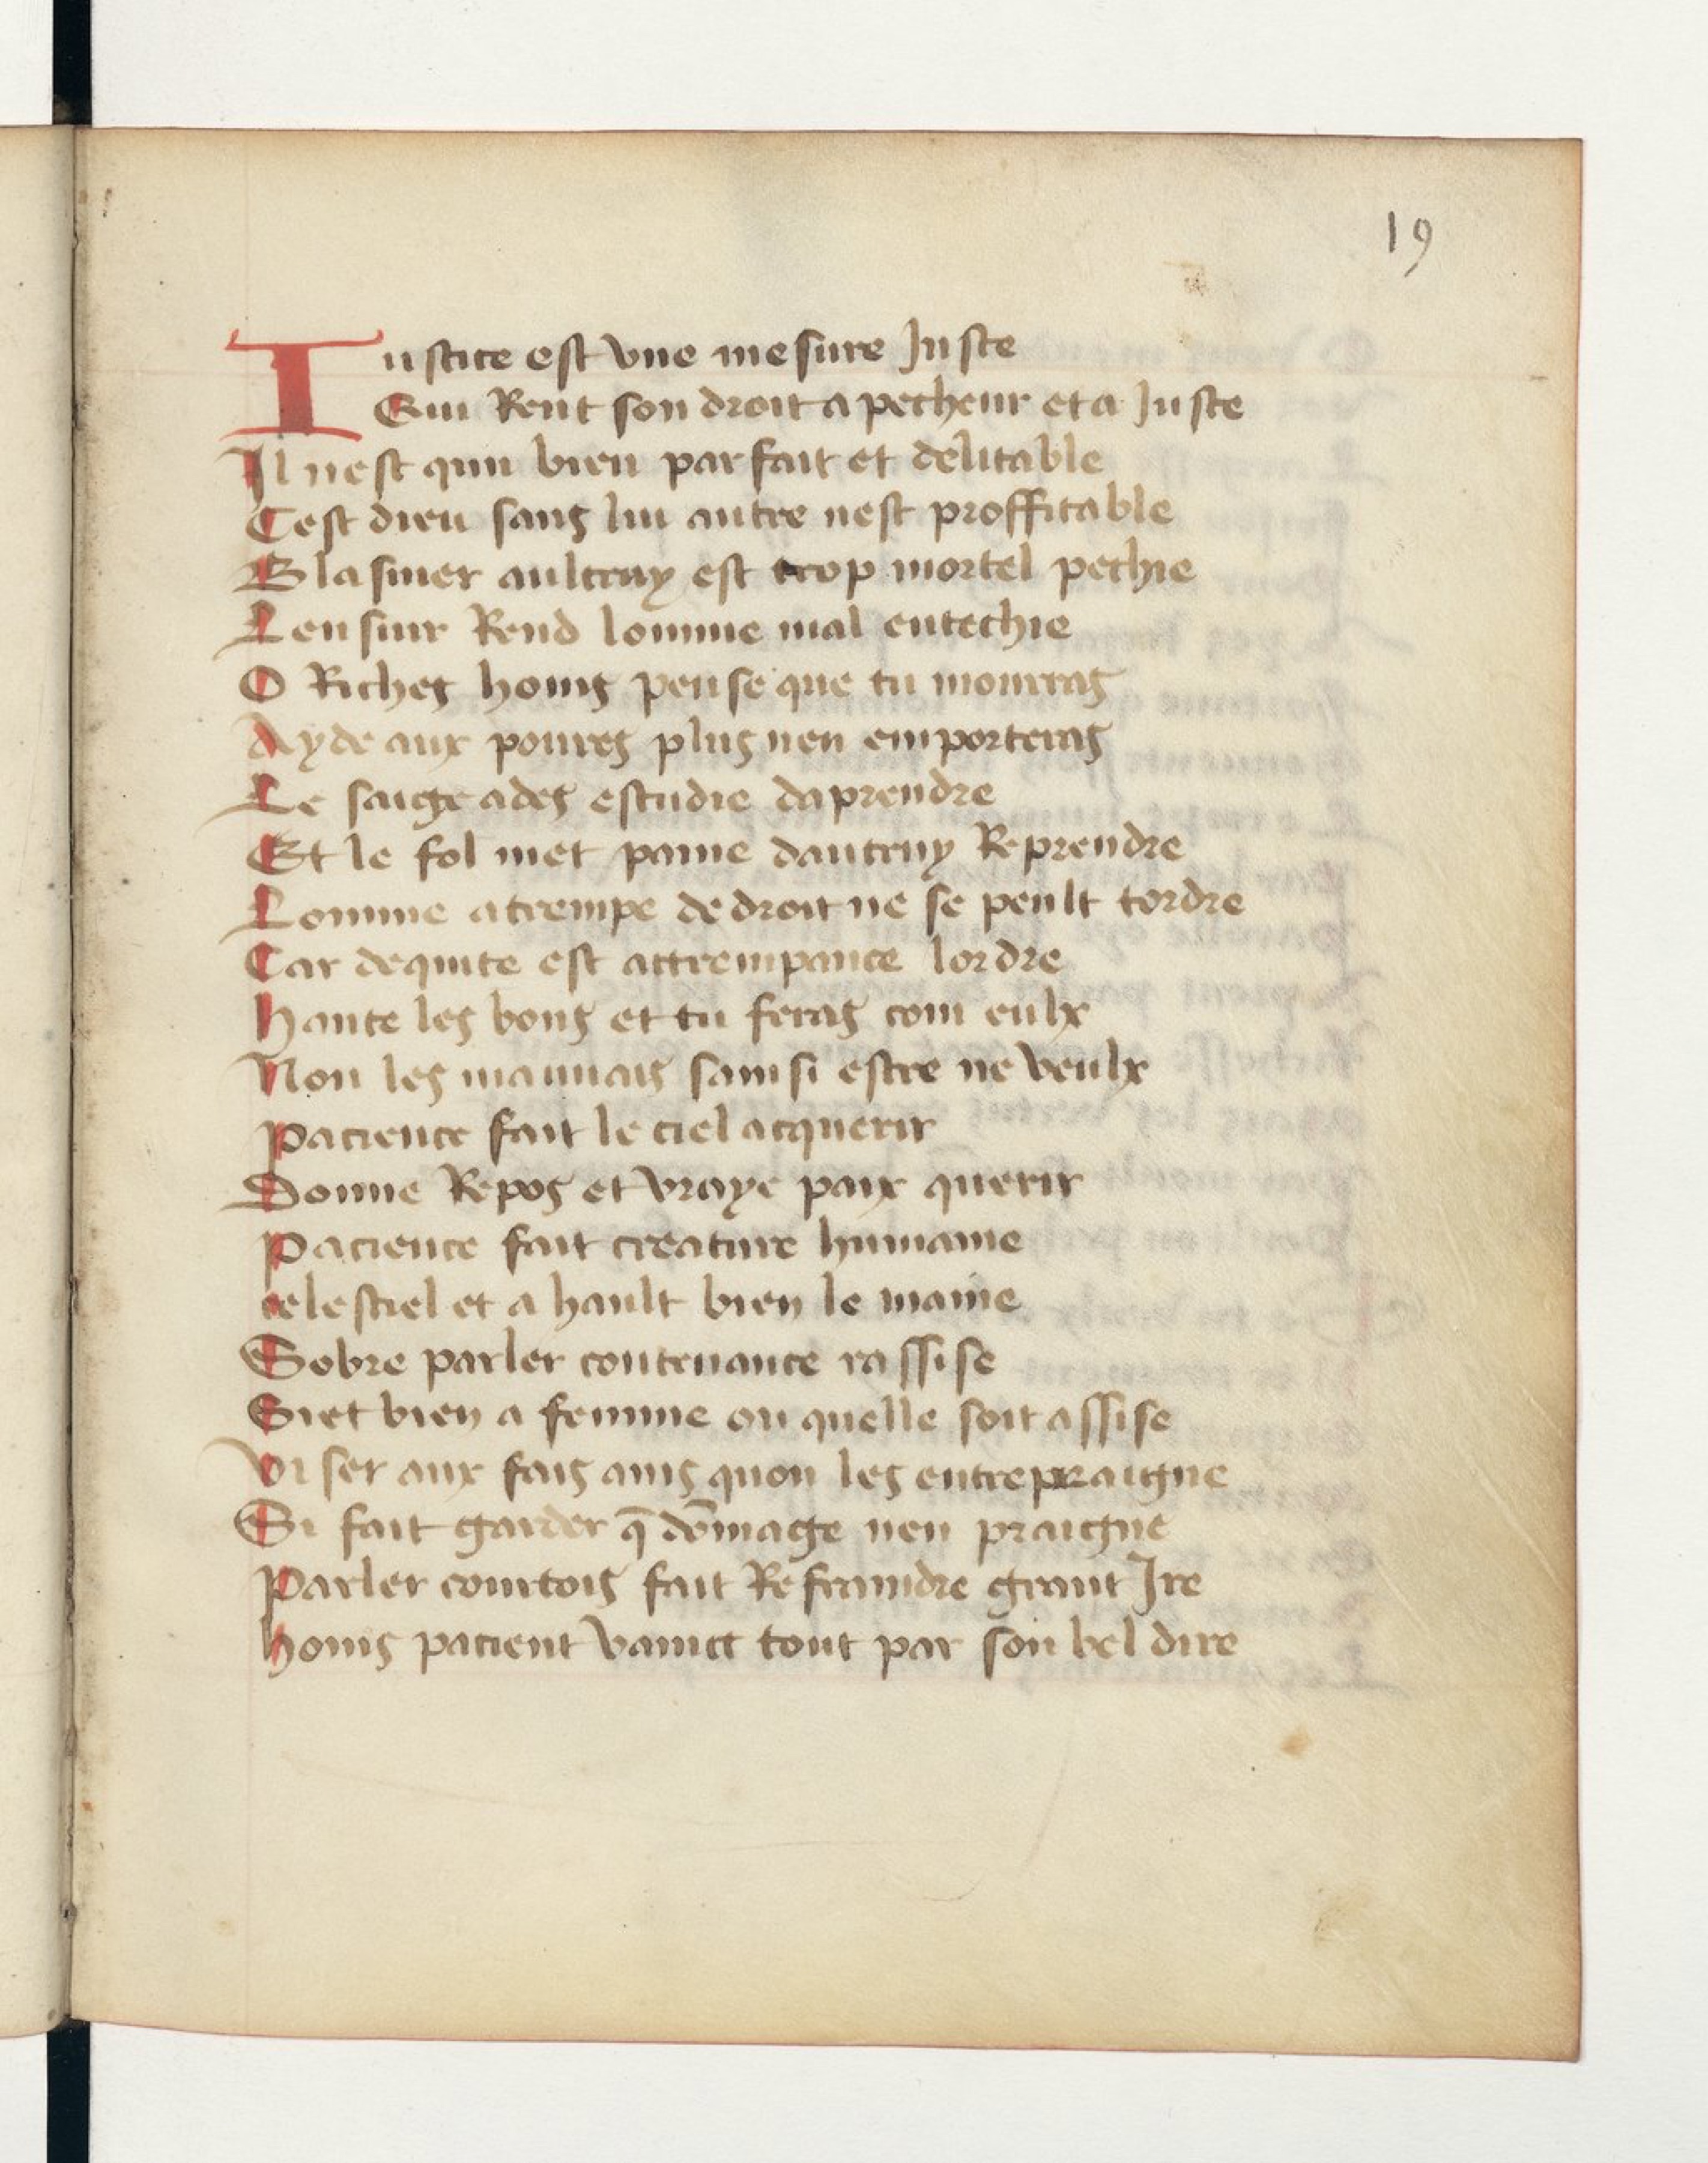 19
Iustice est vne mesure Juste
Qui Rent son droit a pecheur et a Juste
Il nest qun bien parfait et delitable
Cest dieu sans lui autre nest proffitable
Blasmer aultruy est trop mortel pechie
Lensuir Rend lomme mal entechie
O Riches homs pense que tu mourras
Ayde aux poures plus nen emporteras
Le saige ades estudie daprendre
Et le fol met paine dautruy Reprendre
Lomme atrempe de droit ne se peult tordre
Car dequite est attrempance lordre
Hante les bons et tu feras com eulx
Non les mauuais sainsi estre ne veulx
Pacience fait le ciel acquerir
Donne Repos et vraye paix querir
Pacience fait creature humaine
celestiel et a hault bien le maine
Sobre parler contenance rassise
Siet bien a femme ou quelle soit assise
Viser aux fais ains quon les entrepraigne
Si fait garder q̄ dōmage nen praigne
Parler courtois fait Refraindre grant Jre
homs pacient vainct tout par son bel dire